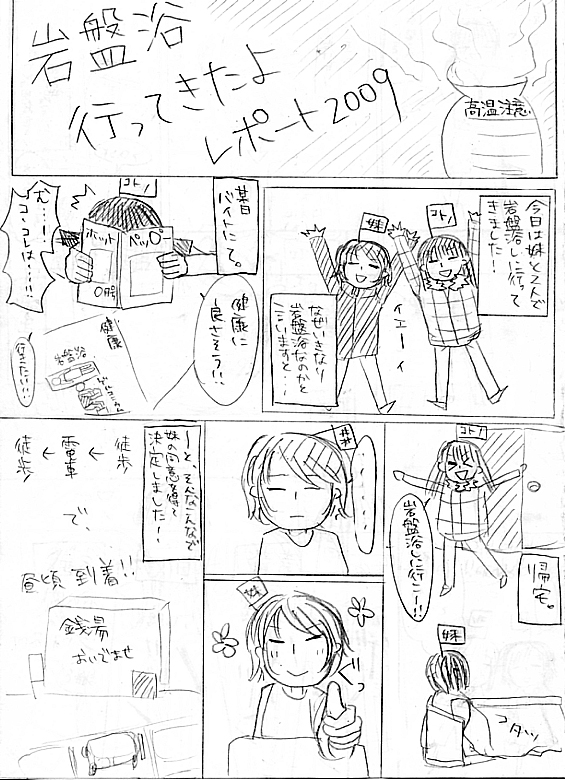 岩盤浴
行ってきたよ
レポート2009
高温注意
今日は妹と2人で
岩盤浴しに行って
きました!
コトノ
妹
イエーイ
なぜいきなり
岩盤浴なのかと
いいますと…
某日
バイトにて。
コトノ
ホット
ペッパー
〇月号
む…!
コ、コレは…!!
健康に
良さそう!!
健康
岩盤浴
行きたい!!
コトノ
岩盤浴しに行こー!!
帰宅。
妹
コタツ
妹
・・・・・
妹
ぐっ
ーと、そんなこんなで
妹の同意を得て
決定しました!
徒歩
←
電車
←
徒歩
で、
昼頃到着!!
銭湯
おいでませ